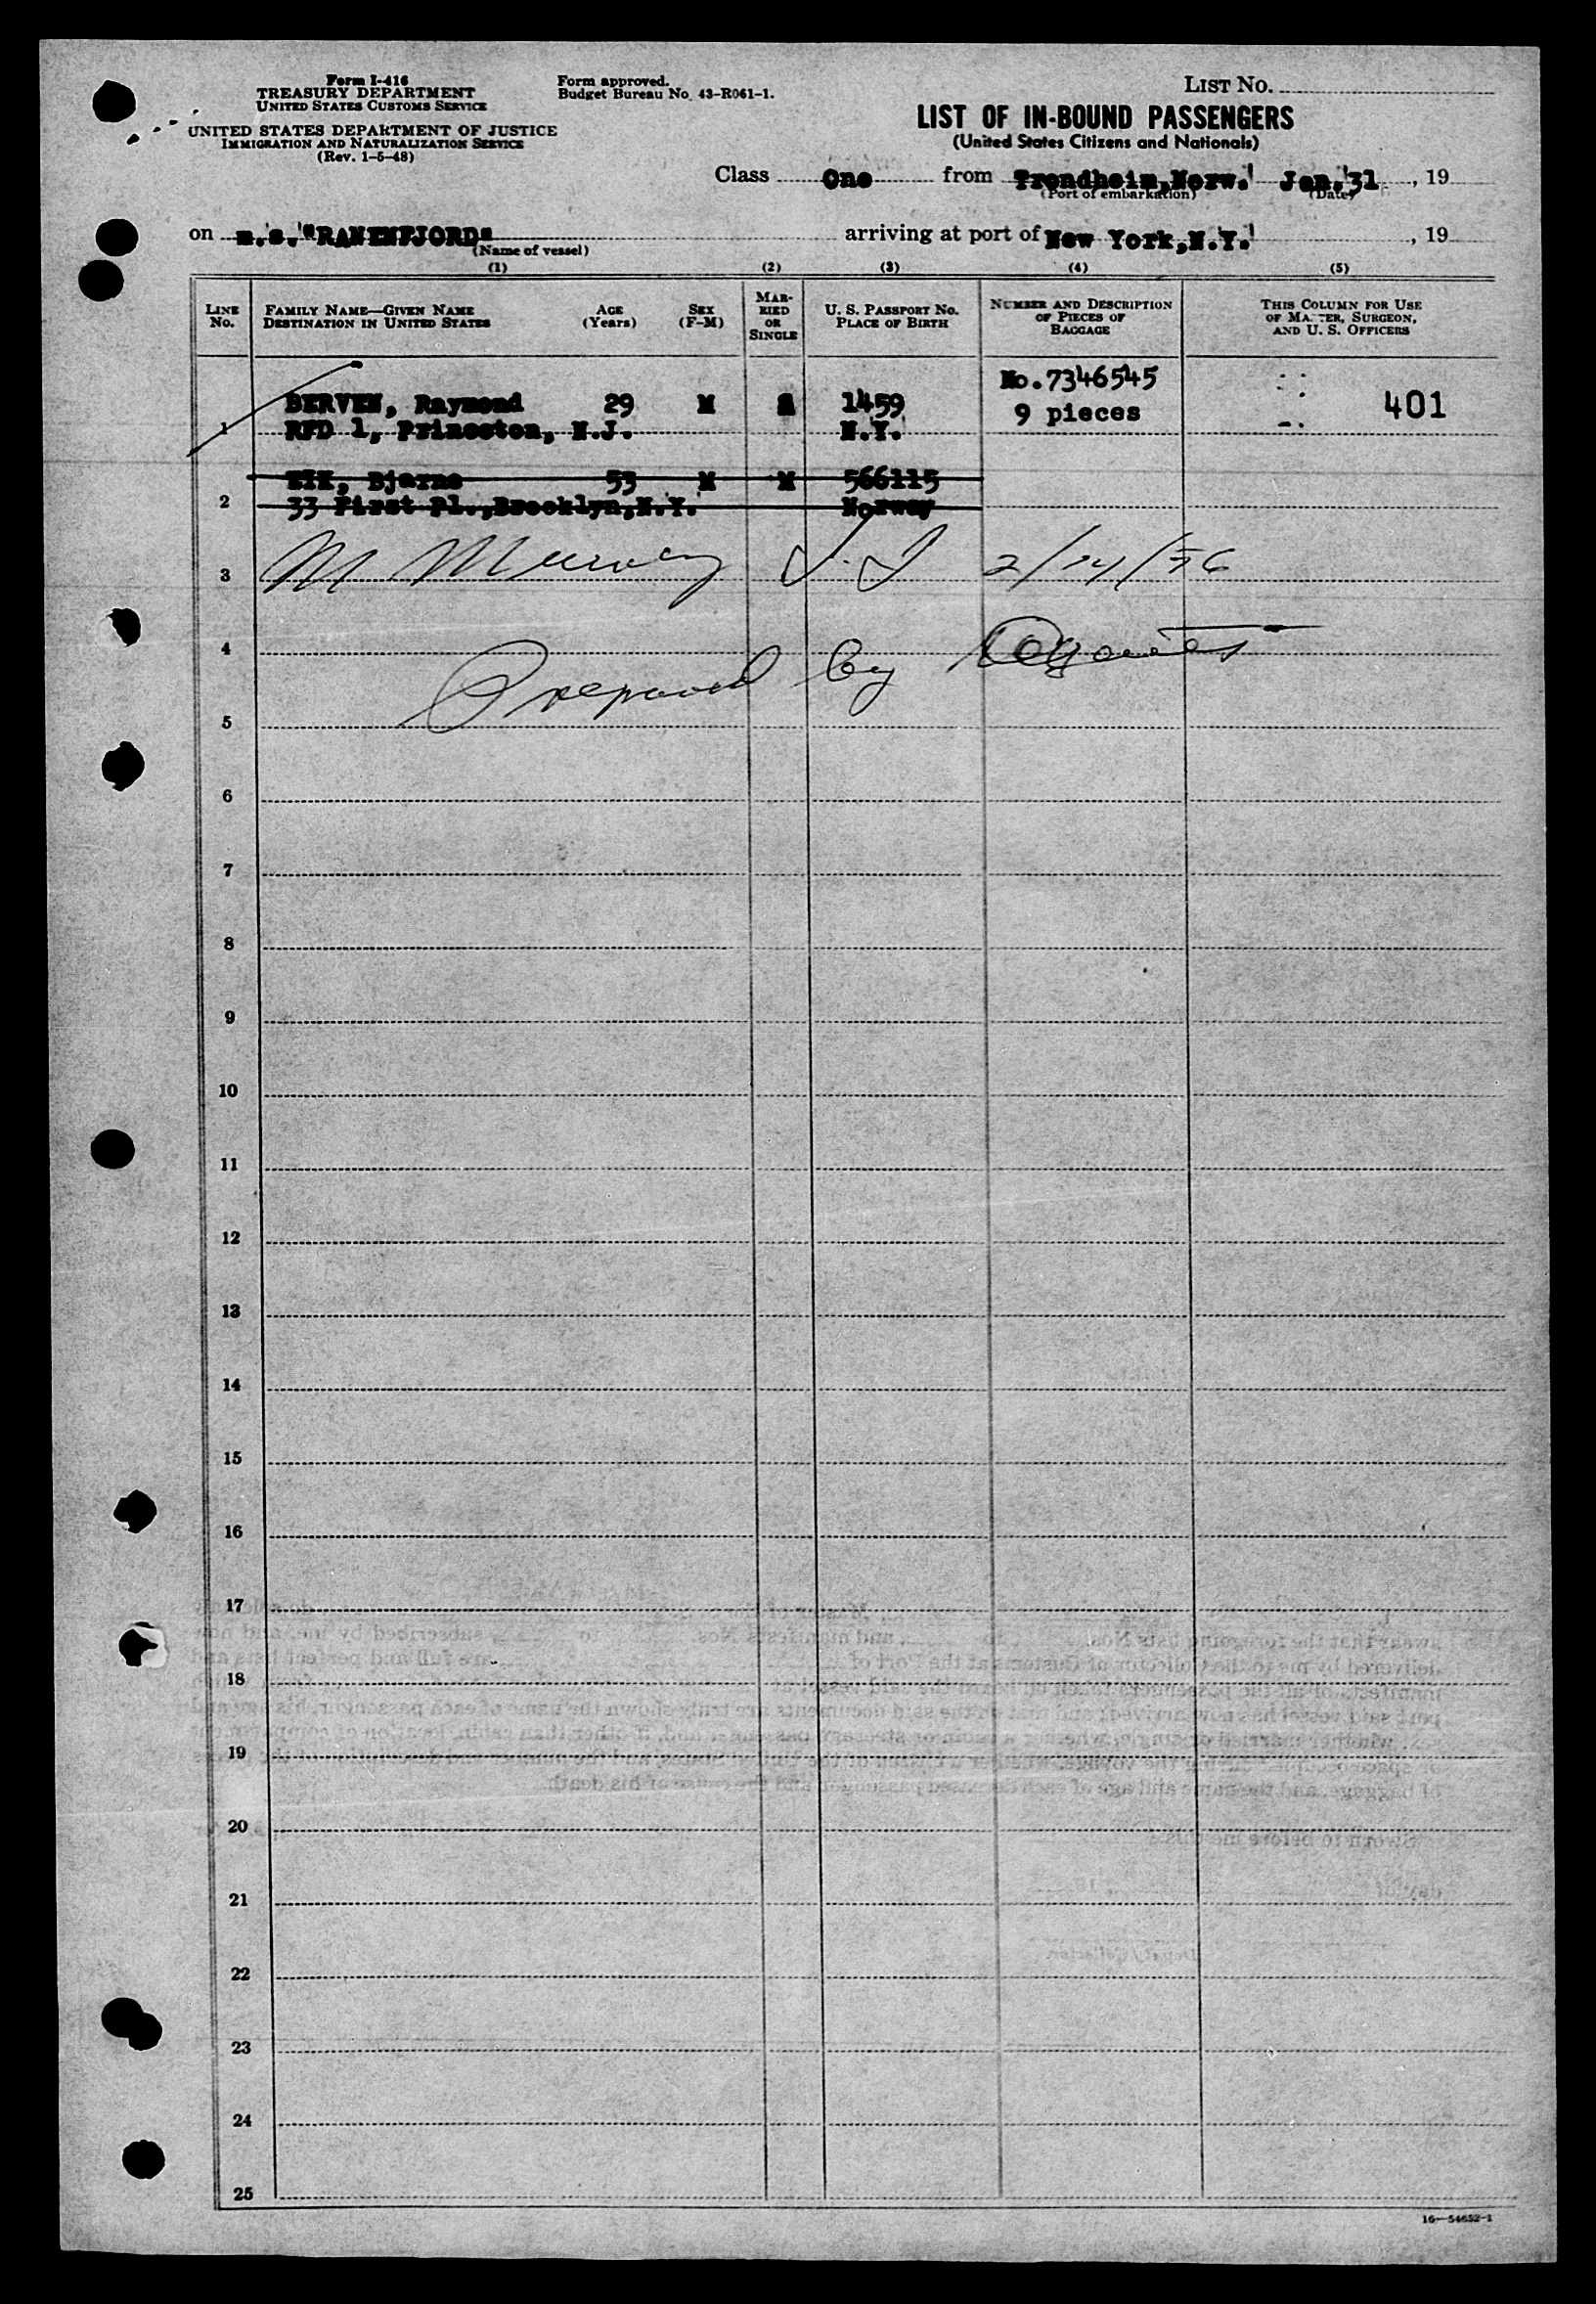 Form I-416
TREASURY DEPARTMENT
UNITED STATES CUSTOMS SERVICE
UNITED STATES DEPARTMENT OF JUSTICE
IMMIGRATION AND NATURALIZATION SERVICE
(Rev. 1-5-48)
Form approved.
Budget Bureau No. 43-R061-1.
LIST NO.
LIST OF IN-BOUND PASSENGERS
(United States Citizens and Nationals)
Class One from Trondheim, Norw. Jan. 31, 19
(Port of embarkation) (Date)
on m.s. "RANENFJORD" arriving at port of New York, N.Y. , 19
(Name of vessel)
(1) (2) (3) (4) (5)
LINE No. FAMILY NAME—GIVEN NAME DESTINATION IN UNITED STATES AGE (Years) SEX (F-M) MARRIED OR SINGLE U. S. PASSPORT NO. PLACE OF BIRTH NUMBER AND DESCRIPTION OF PIECES OF BAGGAGE THIS COLUMN FOR USE OF MASTER, SURGEON, AND U. S. OFFICERS
No. 7346545
BERVEN, Raymond 29 M 1459 9 pieces 401
1 RFD 1, Princeton, N.J. N.Y.
Bjarne 53 M M 566115
2 33 First Pl., Brooklyn, N.Y. Norway
3 M 2/24/56
4
Prepared by
5
6
7
8
9
10
11
12
13
14
15
16
17
18
19
20
21
22
23
24
25
16—54652-1